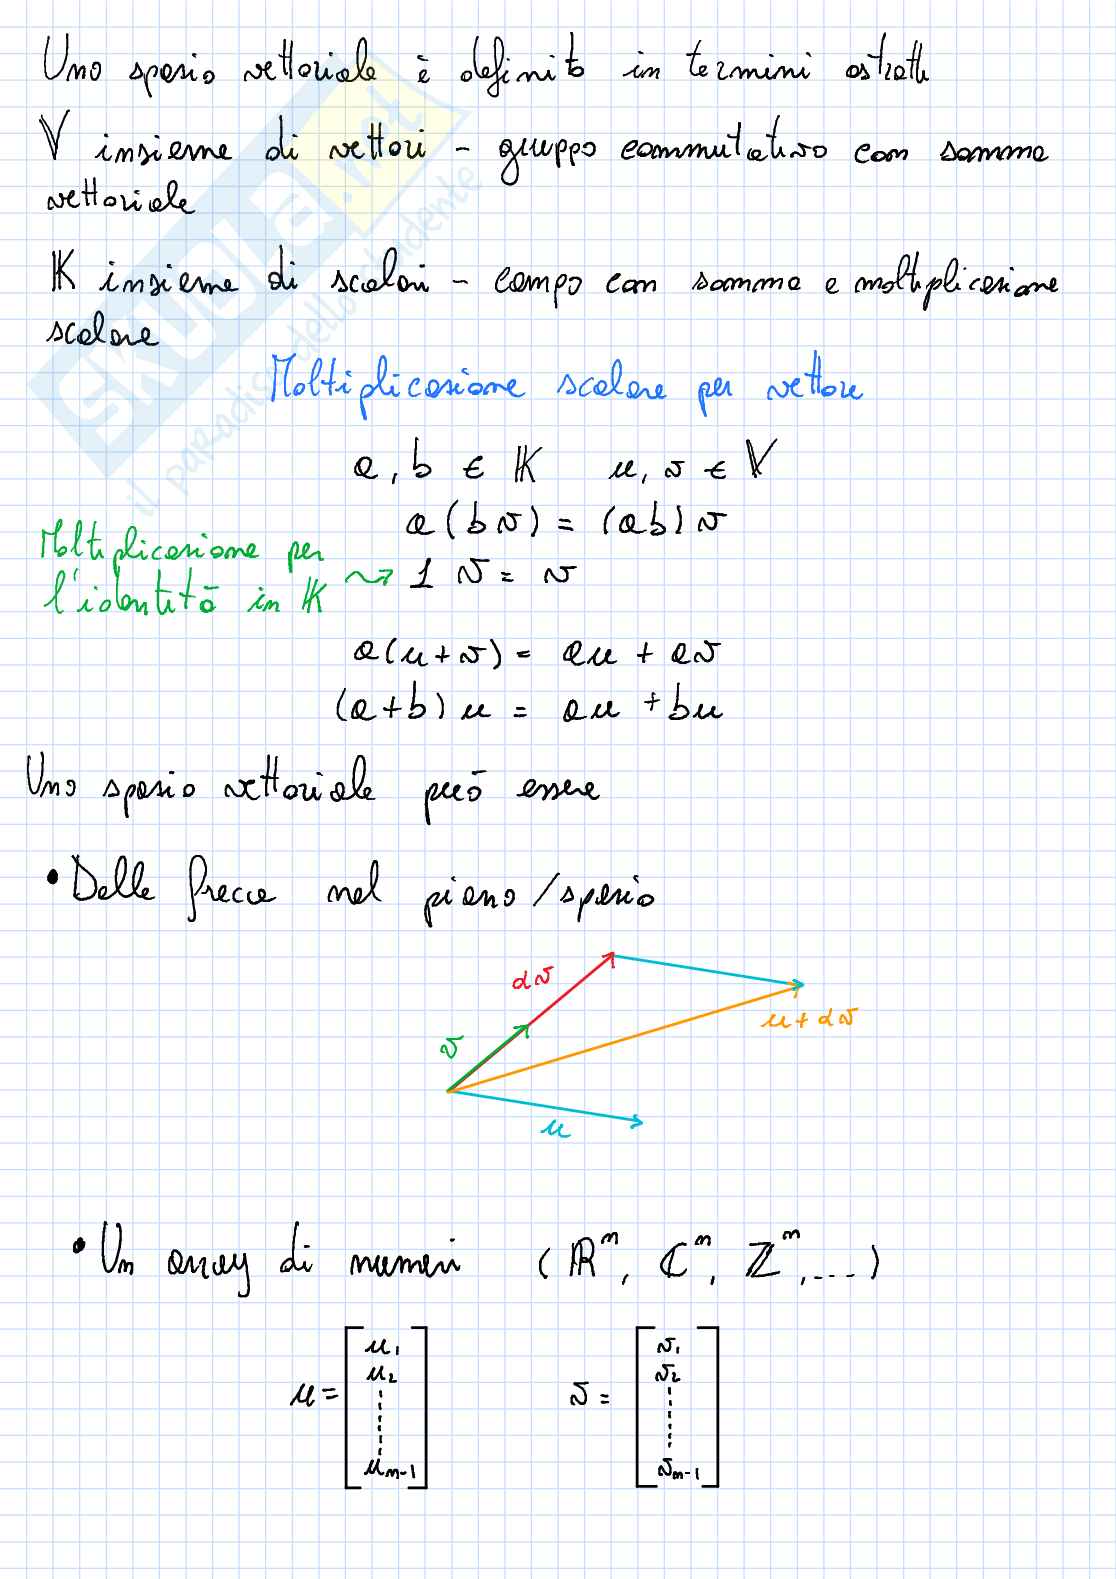 Uno spazio vettoriale è definito in termini astratti
𝕍 insieme di vettori - gruppo commutativo con somma
vettoriale
𝕂 insieme di scalari - campo con somma e moltiplicazione
scalare
Moltiplicazione scalare per vettore
a, b ∈ 𝕂   u, v ∈ 𝕍
a(bv) = (ab)v
Moltiplicazione per
l'identità in 𝕂
⤳ 1 v = v
a(u+v) = au + av
(a+b)u = au + bu
Uno spazio vettoriale può essere
• Delle frecce nel piano/spazio
αv
v
u+αv
u
• Un array di numeri (ℝⁿ, ℂⁿ, ℤⁿ, ....)
u = [u₁ u₂ ⋮ uₙ₋₁]   v = [v₁ v₂ ⋮ vₙ₋₁]
SKUOLA.net
il paradiso dello studente